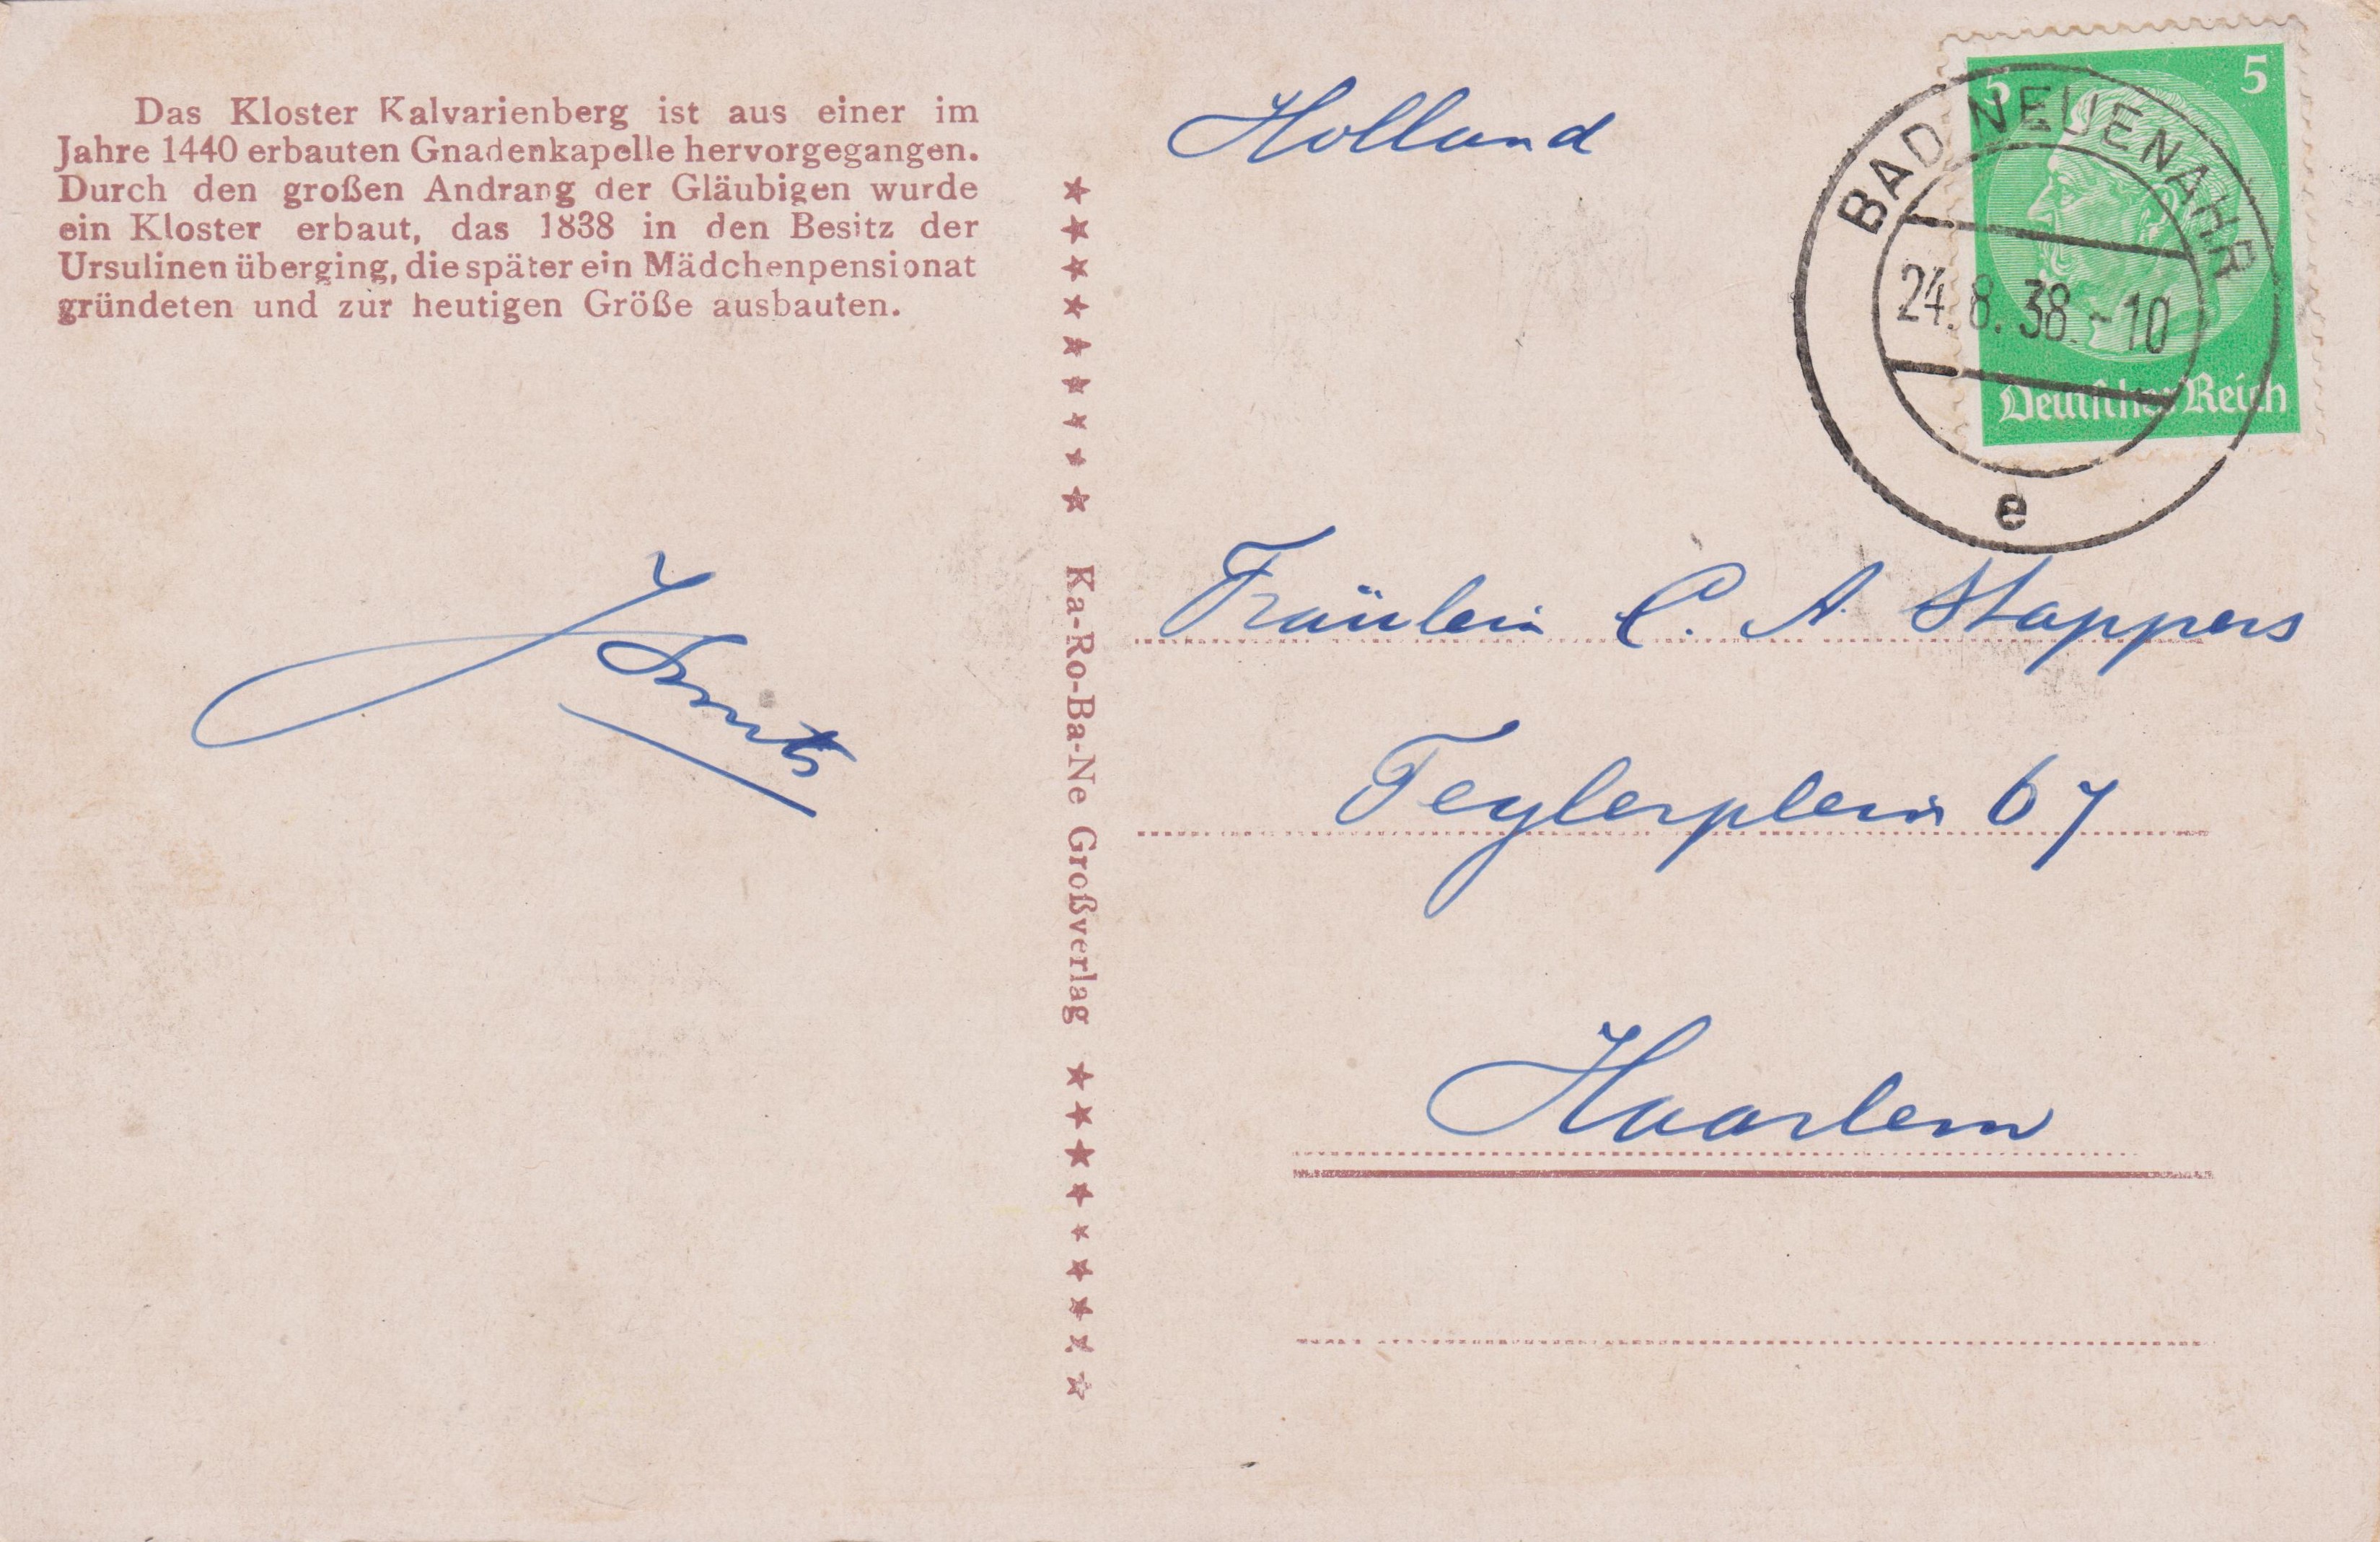 Das Kloster Kalvarienberg ist aus einer im
Jahre 1440 erbauten Gnadenkapelle hervorgegangen.
Durch den großen Andrang der Gläubigen wurde
ein Kloster erbaut, das 1838 in den Besitz der
Ursulinen überging, die später ein Mädchenpensionat
gründeten und zur heutigen Größe ausbauten.
Ka-Ro-Ba-Ne Großverlag
Holland
5 5
Deutsches Reich
BAD NEUENAHR
24.8.38.-10
e
Fräulein C. A. Stappers
Teylerplein 67
Haarlem